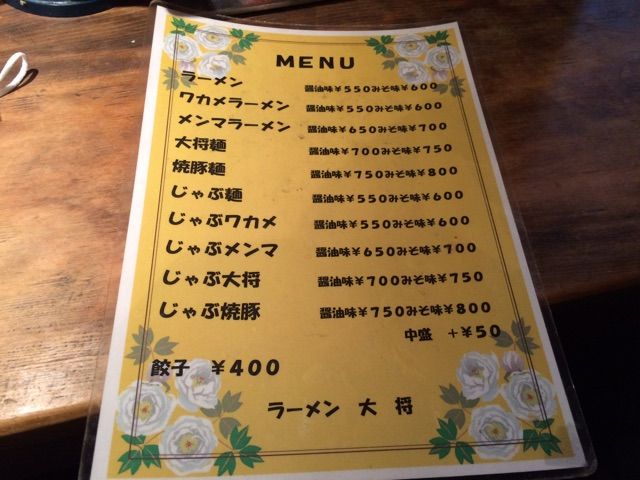 MENU
ラーメン 醤油味￥550みそ味￥600
ワカメラーメン 醤油味￥550みそ味￥600
メンマラーメン 醤油味￥650みそ味￥700
大将麺 醤油味￥700みそ味￥750
焼豚麺 醤油味￥750みそ味￥800
じゃぶ麺 醤油味￥550みそ味￥600
じゃぶワカメ 醤油味￥550みそ味￥600
じゃぶメンマ 醤油味￥650みそ味￥700
じゃぶ大将 醤油味￥700みそ味￥750
じゃぶ焼豚 醤油味￥750みそ味￥800
中盛 +￥50
餃子 ￥400
ラーメン 大 将